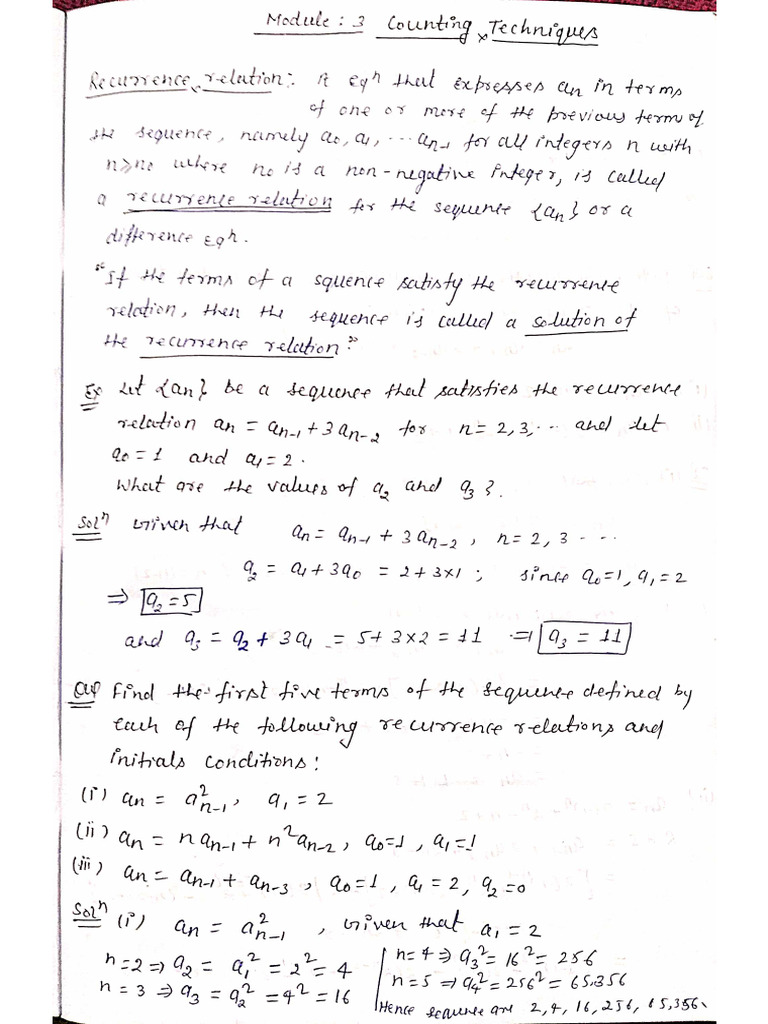 Module : 3 Counting Techniques
Recurrence relation :- A eqn that expresses an in terms
of one or more of the previous term of
the sequence, namely a0, a1, ... an-1 for all integers n with
n≥n0 where n0 is a non-negative integer, is called
a recurrence relation for the sequence {an} or a
difference eqn.
"If the terms of a squence satisfy the recurrence
relation, then the sequence is called a solution of
the recurrence relation."
Ex Let {an} be a sequence that satisfies the recurrence
relation an = an-1 + 3an-2 for n = 2, 3, ... and let
a0 = 1 and a1 = 2.
What are the values of a2 and a3?
Soln Given that an = an-1 + 3an-2, n = 2, 3 ...
a2 = a1 + 3a0 = 2 + 3×1 ; since a0=1, a1 = 2
⇒ a2 = 5
and a3 = a2 + 3a1 = 5 + 3×2 = 11 ⇒ a3 = 11
Q1 Find the first five terms of the sequence defined by
each of the following recurrence relations and
initials conditions :
(i) an = a²n-1, a1 = 2
(ii) an = n an-1 + n² an-2, a0=1, a1=1
(iii) an = an-1 + an-3, a0=1, a1 = 2, a2 = 0
Soln (i) an = a²n-1, Given that a1 = 2
n=2 ⇒ a2 = a1² = 2² = 4
n = 3 ⇒ a3 = a2² = 4² = 16
n=4 ⇒ a3² = 16² = 256
n = 5 ⇒ a4² = 256² = 65,356
Hence sequence are 2, 4, 16, 256, 65,356.